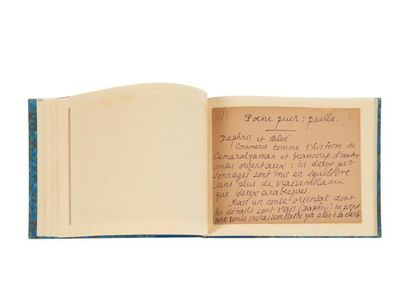 Poene puer : puella
Daphnis et Chloé
Commerce comme l'histoire de
Camaralzaman et beaucoup d'autres
contes orientaux : les deux per-
sonnages sont mis en équilibre
sans plus de vraisemblance
que deux arabesques.
Mais un conte oriental dont
les détails sont vrais (Daphnis)
une